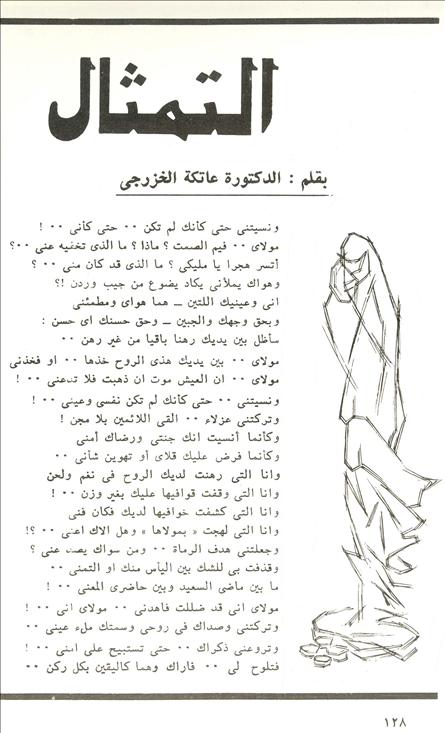 التمثال
بقلم : الدكتورة عاتكة الخزرجى
ونسيتنى حتى كأنك لم تكن ٠٠ حتى كأنى ٠٠ !
مولاى ٠٠ فيم الصمت ؟ ماذا ؟ ما الذى تخفيه عنى ٠٠؟
أتسر هجرا يا مليكى ؟ ما الذى قد كان منى ٠٠ ؟
وهواك يملأنى يكاد يضوع من جيب وردن !؟
انى وعينيك اللتين ــ هما هواى ومطمئنى
وبحق وجهك والجبين ــ وحق حسنك اى حسن :
سأظل بين يديك رهنا باقيا من غير رهن ٠٠
مولاى ٠٠ بين يديك هذى الروح خذها ٠٠ او فخذنى
مولاى ٠٠ ان العيش موت ان ذهبت فلا تدعنى ٠٠ !
ونسيتنى ٠٠ حتى كأنك لم تكن نفسى وعينى ٠٠ !
وتركتنى عزلاء ٠٠ القى اللائمين بلا مجن !
وكأنما أنسيت انك جنتى ورضاك أمنى
وكأنما فرض عليك قلاى أو تهوين شأنى ٠٠
وانا التى رهنت لديك الروح فى نغم ولحن
وانا التى وقفت قوافيها عليك بغير وزن ٠٠ !
وانا التى كشفت خوافيها لديك فكان فنى
وانا التى لهجت « بمولاها » وهل الاك اعنى ٠٠ ؟!
وجعلتنى هدف الرماة ٠٠ ومن سواك يصد عنى ؟
وقذفت بى للشك بين اليأس منك او التمنى ٠٠
ما بين ماضى السعيد وبين حاضرى المعنى ٠٠ !
مولاى انى قد ضللت فاهدنى ٠٠ مولاى انى ٠٠ !
وتركتنى وصداك فى روحى وسمتك ملء عينى ٠٠
وتروعنى ذكراك ٠٠ حتى تستبيح على امنى ٠٠ !
فتلوح لى ٠٠ فاراك وهما كاليقين بكل ركن ٠٠
١٢٨